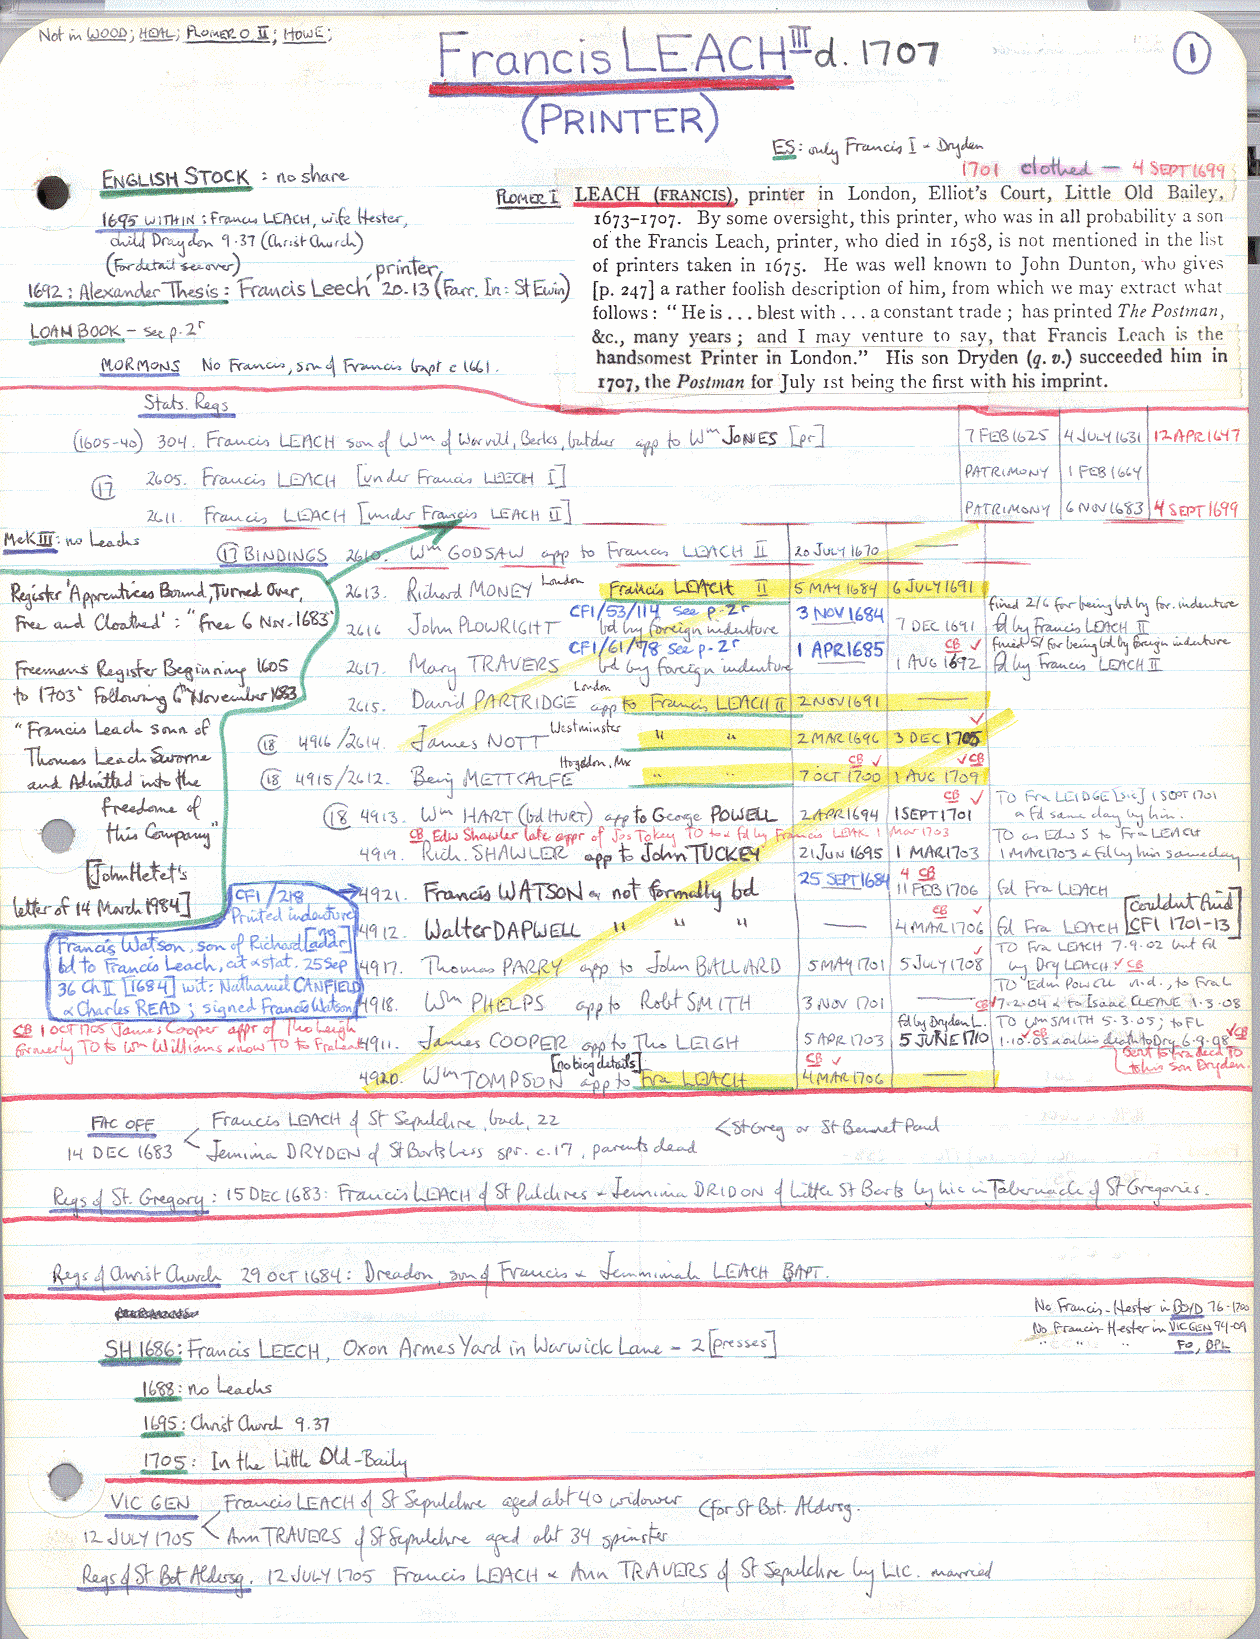 Not in WOOD; HEAL; PLOMER O, II; HOWE;
Francis LEACH III d. 1707
1
(PRINTER)
ES: only Francis I - Dryden
1701 clothed — 4 SEPT 1699
ENGLISH STOCK : no share
1695 WITHIN : Francis LEACH, wife Hester,
child Draydon 9.37 (Christ Church)
(For detail see over)
1692 : Alexander Thesis : Francis Leech, printer, 20.13 (Farr. In : St Ewin)
LOAN BOOK – see p. 2r
MORMONS No Francis, son of Francis bapt c 1661.
PLOMER I LEACH (FRANCIS), printer in London, Elliot's Court, Little Old Bailey,
1673–1707. By some oversight, this printer, who was in all probability a son
of the Francis Leach, printer, who died in 1658, is not mentioned in the list
of printers taken in 1675. He was well known to John Dunton, who gives
[p. 247] a rather foolish description of him, from which we may extract what
follows : " He is . . . blest with . . . a constant trade ; has printed The Postman,
&c., many years ; and I may venture to say, that Francis Leach is the
handsomest Printer in London." His son Dryden (q. v.) succeeded him in
1707, the Postman for July 1st being the first with his imprint.
Stats. Regs
(1605-40) 304. Francis LEACH son of Wm of Warvill, Berks, butcher app to Wm JONES [pr] 7 FEB 1625 4 JULY 1631 12 APR 1647
17 2605. Francis LEACH [under Francis LEECH I] PATRIMONY 1 FEB 1664
2611. Francis LEACH [under Francis LEACH II] PATRIMONY 6 NOV 1683 4 SEPT 1699
McK III: no Leachs
17 BINDINGS 2610. Wm GODSAW app to Francis LEACH II 20 JULY 1670 —
2613. Richard MONEY London Francis LEACH II 5 MAY 1684 6 JULY 1691
2616 John PLOWRIGHT CF1/53/114 see p. 2r bd by foreign indenture 3 NOV 1684 7 DEC 1691 fined 2/6 for being bd by for. indenture fd by Francis LEACH II
2617. Mary TRAVERS CF1/61/78 see p. 2r bd by foreign indenture 1 APR 1685 CB ✓ 1 AUG 1692 fined 5/ for being bd by foreign indenture fd by Francis LEACH II
2615. David PARTRIDGE London app to Francis LEACH II 2 NOV 1691 —
18 4916/2614. James NOTT Westminster " " 2 MAR 1696 3 DEC 1705 ✓
18 4915/2612. Benj METTCALFE Hogsdon, Mx " " 7 OCT 1700 CB ✓ 1 AUG 1709 ✓ CB
18 4913. Wm HART (bd HURT) app to George POWELL 2 APR 1694 1 SEPT 1701 CB ✓ TO Fra LEIDGE [sic] 1 SEPT 1701 & fd same day by him.
CB Edw Shawler late appr of Jos Tokey TO to & fd by Francis LEAK 1 Mar 1703
4919. Rich. SHAWLER app to John TUCKEY 21 JUN 1695 1 MAR 1703 TO as Edw S to Fra LEACH 1 MAR 1703 & fd by him same day
4921. Francis WATSON & not formally bd 25 SEPT 1684 4 CB 11 FEB 1706 fd Fra LEACH
4912. Walter DAPWELL " " " — CB ✓ 4 MAR 1706 fd Fra LEACH [Couldn't find CF1 1701-13]
4917. Thomas PARRY app to John BALLARD 5 MAY 1701 5 JULY 1708 ✓ TO Fra LEACH 7.9.02 but fd by Dry LEACH ✓ CB
4918. Wm PHELPS app to Robt SMITH 3 NOV 1701 TO Edm POWELL n.d., to Fra L CB 7.2.04 & to Isaac CLEAVE 1.3.08
4911. James COOPER app to Tho LEIGH 5 APR 1703 fd by Dryden L. 5 JUNE 1710 TO Wm SMITH 5.3.05; to FL 1.10.05 ✓ CB & on his death to Dry 6.9.08 ✓ CB
Sent to Fra decd TO to his son Dryden.
4920. Wm TOMPSON [no biog details] app to Fra LEACH CB ✓ 4 MAR 1706 —
Register 'Apprentices Bound, Turned Over,
Free and Cloathed' : "free 6 Nov. 1683"
Freemans Register Beginning 1605
to 1703' Following 6th November 1683
"Francis Leach sonn of
Thomas Leach Sworne
and Admitted into the
freedome of
this Company"
[John Hetet's
letter of 14 March 1984]
CF1 / 218
Printed indenture
Francis Watson, son of Richard [no addr]
bd to Francis Leach, cit & stat. 25 Sep
36 Ch II [1684] wit: Nathaniel CANFIELD
& Charles READ ; signed Francis Watson
CB 1 OCT 1705 James Cooper appr of Tho Leigh
formerly TO to Wm Williams & now TO to Fra Leach
FAC OFF
14 DEC 1683
Francis LEACH of St Sepulchre, bach, 22
Jemima DRYDEN of St Barts Less spr. c. 17, parents dead
< St Greg or St Bennet Paul
Regs of St. Gregory : 15 DEC 1683 : Francis LEACH of St Pulchres & Jemimia DRIDON of Little St Barts by lic in Tabernacle of St Gregories.
Regs of Christ Church 29 OCT 1684 : Dreadon, son of Francis & Jemmimah LEACH BAPT.
No Francis-Hester in BOYD 76-1700
No Francis-Hester in VIC GEN 94-09
" " " FO, BPL
SH 1686 : Francis LEECH, Oxon Armes Yard in Warwick Lane – 2 [presses]
1688 : no Leachs
1695 : Christ Church 9.37
1705 : In the Little Old-Baily
VIC GEN
12 JULY 1705
Francis LEACH of St Sepulchre aged abt 40 widower
Ann TRAVERS of St Sepulchre aged abt 34 spinster
(for St Bot. Aldersg.
Regs of St Bot Aldersg. 12 JULY 1705 Francis LEACH & Ann TRAVERS of St Sepulchre by LIC. married